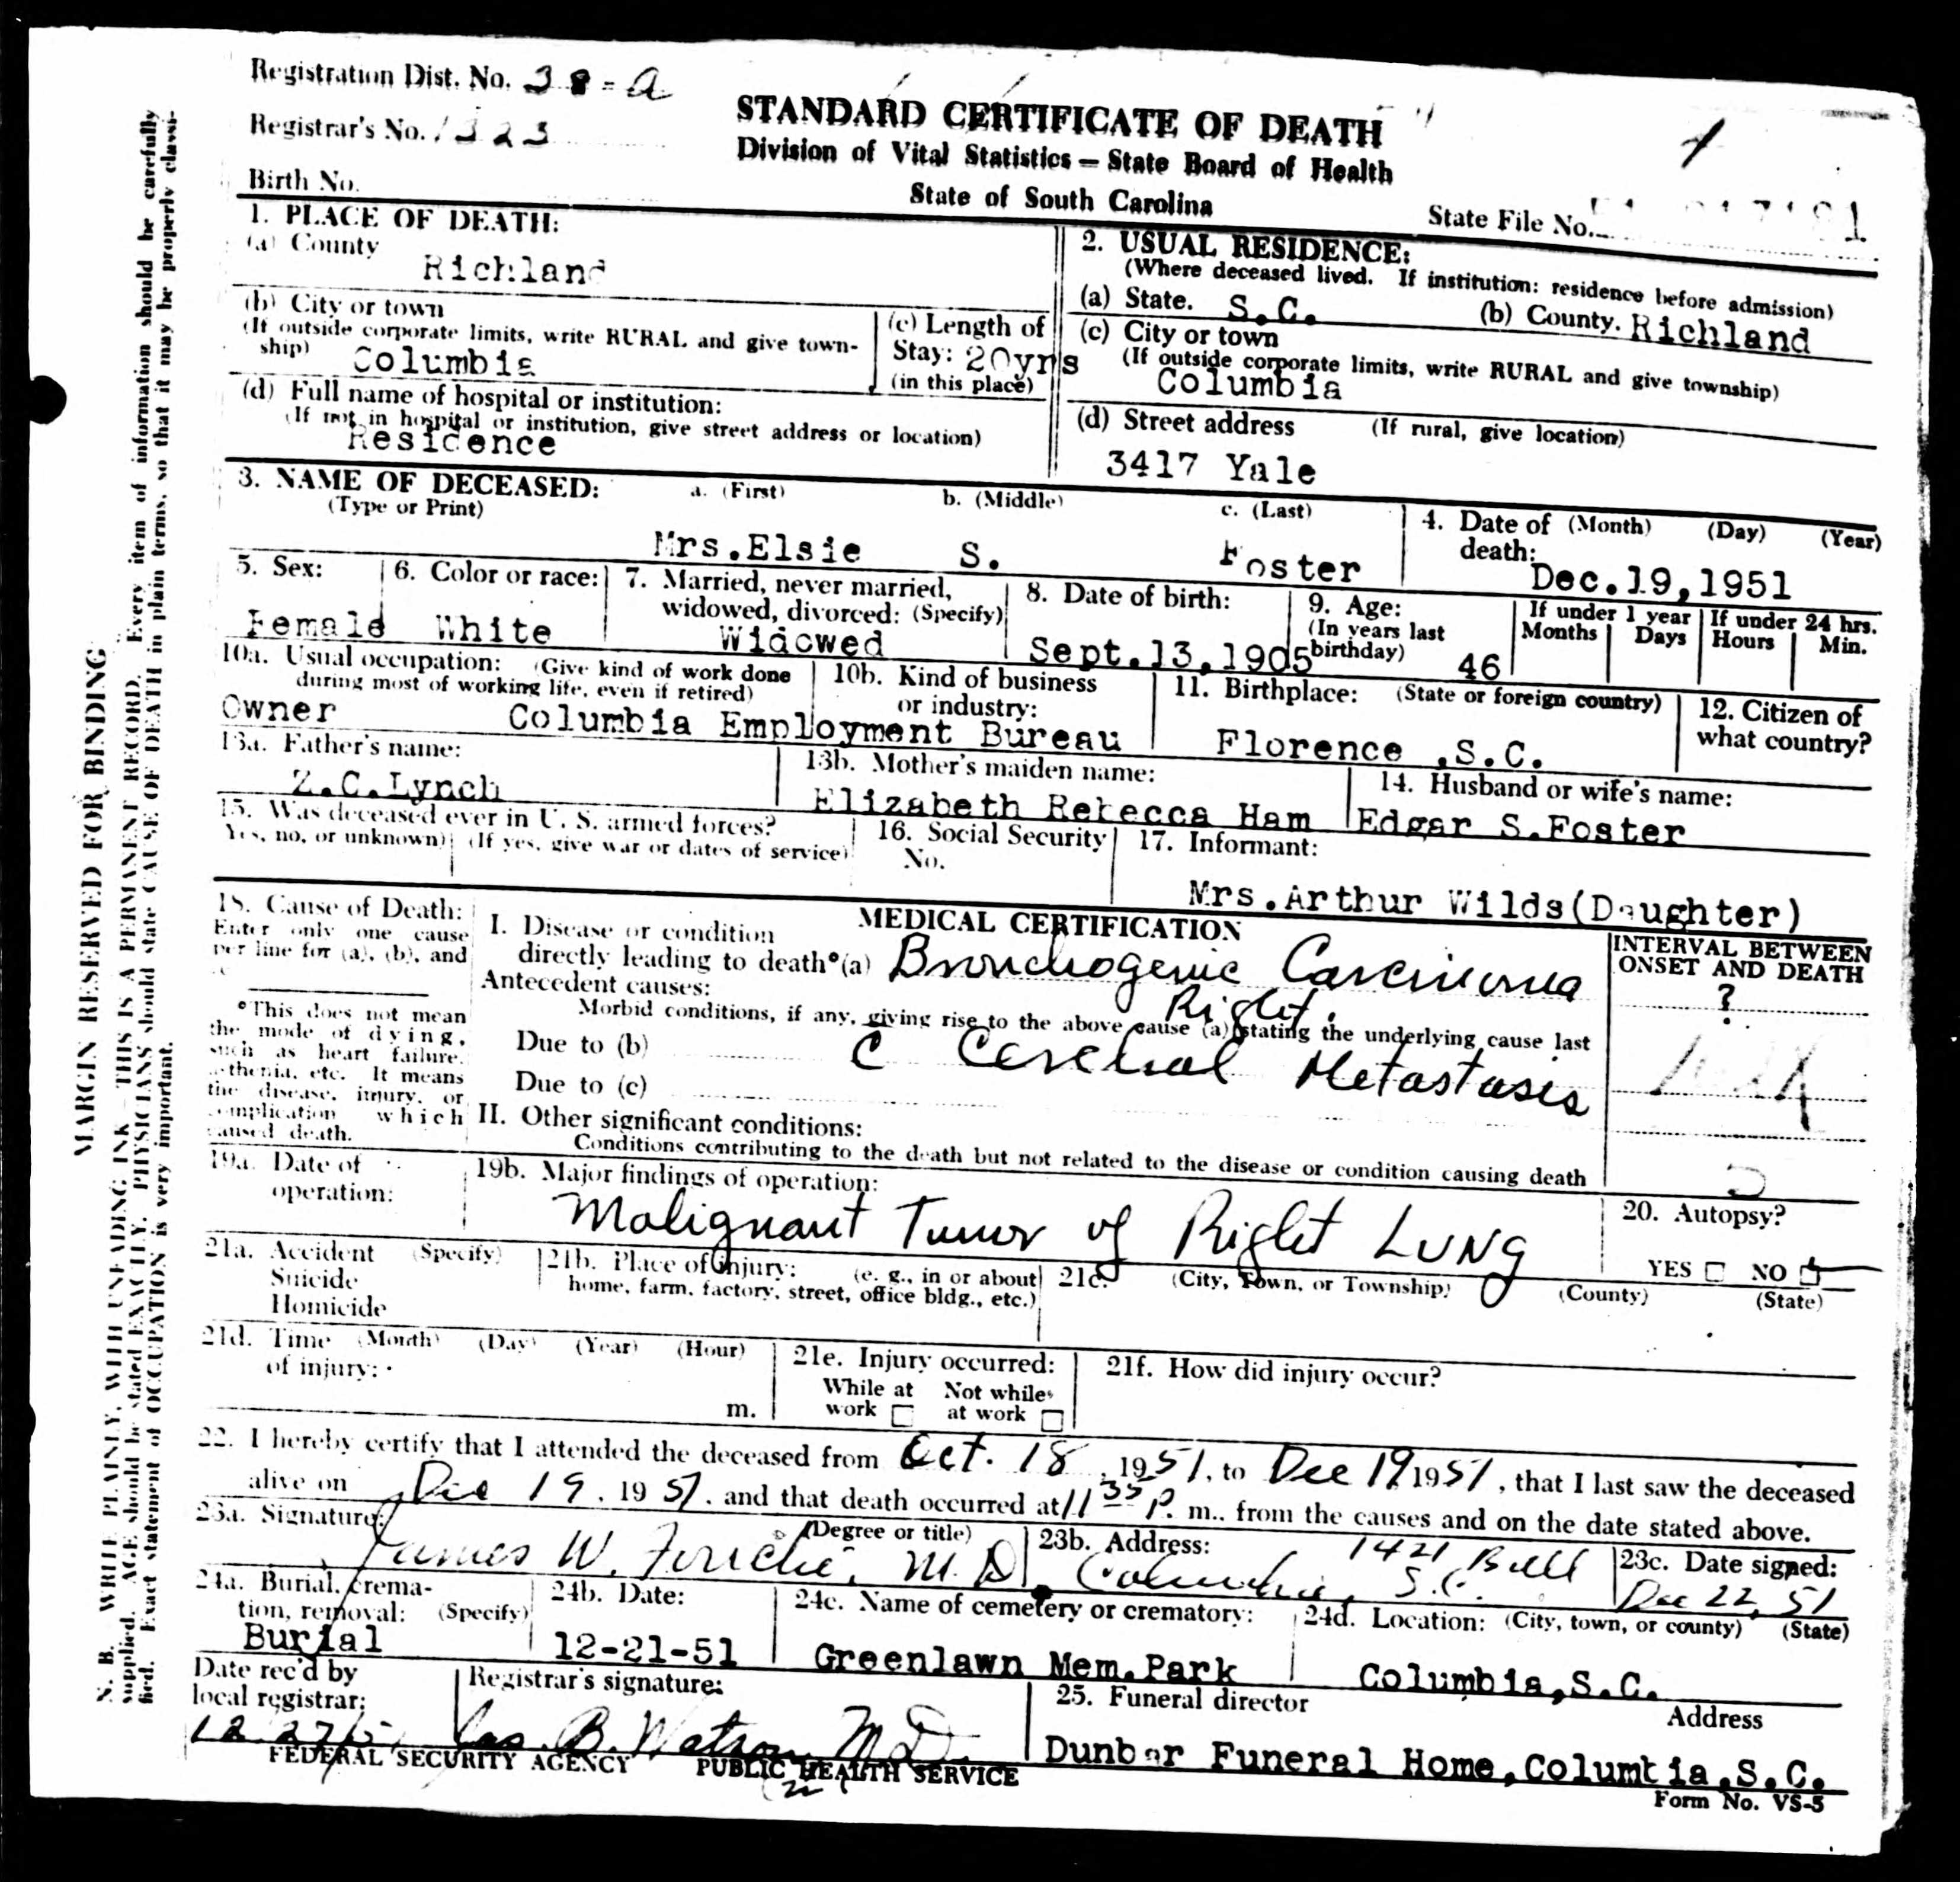 Registration Dist. No. 38-a
Registrar's No. 1323
STANDARD CERTIFICATE OF DEATH
Division of Vital Statistics — State Board of Health
State of South Carolina
Birth No.
State File No.
1. PLACE OF DEATH:
(a) County
Richland
(b) City or town
(If outside corporate limits, write RURAL and give township)
Columbia
(c) Length of
Stay: 20yrs
(in this place)
(d) Full name of hospital or institution:
(If not in hospital or institution, give street address or location)
Residence
2. USUAL RESIDENCE:
(Where deceased lived. If institution: residence before admission)
(a) State. S.C. (b) County. Richland
(c) City or town
(If outside corporate limits, write RURAL and give township)
Columbia
(d) Street address (If rural, give location)
3417 Yale
3. NAME OF DECEASED: a. (First) b. (Middle) c. (Last)
(Type or Print)
Mrs.Elsie S. Foster
4. Date of (Month) (Day) (Year)
death:
Dec.19,1951
5. Sex:
Female
6. Color or race:
White
7. Married, never married,
widowed, divorced: (Specify)
Widowed
8. Date of birth:
Sept.13,1905
9. Age:
(In years last
birthday) 46
If under 1 year If under 24 hrs.
Months Days Hours Min.
10a. Usual occupation: (Give kind of work done
during most of working life, even if retired)
Owner
10b. Kind of business
or industry:
Columbia Employment Bureau
11. Birthplace: (State or foreign country)
Florence ,S.C.
12. Citizen of
what country?
13a. Father's name:
Z.C.Lynch
13b. Mother's maiden name:
Elizabeth Rebecca Ham
14. Husband or wife's name:
Edgar S.Foster
15. Was deceased ever in U. S. armed forces?
Yes, no, or unknown) (If yes, give war or dates of service)
16. Social Security
No.
17. Informant:
Mrs.Arthur Wilds(Daughter)
18. Cause of Death:
Enter only one cause
per line for (a), (b), and
°This does not mean
the mode of dying,
such as heart failure,
asthenia, etc. It means
the disease, injury, or
complication which
caused death.
MEDICAL CERTIFICATION
I. Disease or condition
directly leading to death°(a) Bronchogenic Carcinoma
Right.
Antecedent causes:
Morbid conditions, if any, giving rise to the above cause (a) stating the underlying cause last
Due to (b) c Cerebral Metastasis
Due to (c)
II. Other significant conditions:
Conditions contributing to the death but not related to the disease or condition causing death
INTERVAL BETWEEN
ONSET AND DEATH
?
19a. Date of
operation:
19b. Major findings of operation:
Malignant Tumor of Right Lung
20. Autopsy?
YES NO
21a. Accident (Specify)
Suicide
Homicide
21b. Place of injury: (e. g., in or about
home, farm, factory, street, office bldg., etc.)
21c. (City, Town, or Township) (County) (State)
21d. Time (Month) (Day) (Year) (Hour)
of injury:
m.
21e. Injury occurred:
While at Not while
work at work
21f. How did injury occur?
22. I hereby certify that I attended the deceased from Oct. 18, 1951, to Dec 19, 1951, that I last saw the deceased
alive on Dec 19, 1951, and that death occurred at 11 35 P. m., from the causes and on the date stated above.
23a. Signature: (Degree or title)
James W. Fouché, M.D.
23b. Address: 1421 Bull
Columbia, S.C.
23c. Date signed:
Dec 22, 51
24a. Burial, cremation, removal: (Specify)
Burial
24b. Date:
12-21-51
24c. Name of cemetery or crematory:
Greenlawn Mem.Park
24d. Location: (City, town, or county) (State)
Columbia,S.C.
Date rec'd by
local registrar:
Registrar's signature:
B. Watson M.D.
25. Funeral director
Address
Dunbar Funeral Home,Columbia,S.C.
FEDERAL SECURITY AGENCY PUBLIC HEALTH SERVICE
Form No. VS-5
MARGIN RESERVED FOR BINDING
N. B. WRITE PLAINLY, WITH UNFADING INK—THIS IS A PERMANENT RECORD. Every item of information should be carefully
supplied. AGE should be stated EXACTLY. PHYSICIANS should state CAUSE OF DEATH in plain terms, so that it may be properly classi-
fied. Exact statement of OCCUPATION is very important.